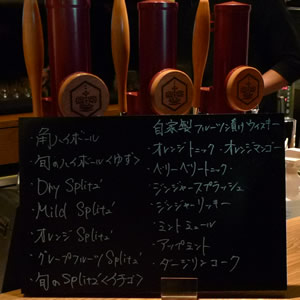 ・角ハイボール
・旬のハイボール<ゆず>
・Dry Splitz
・Mild Splitz
・オレンジ Splitz
・グレープフルーツ Splitz
・旬の Splitz<イチゴ>
自家製フルーツ漬けウイスキー
・オレンジトニック・オレンジマンゴー
・ベリーベリートニック・
・ジンジャースプラッシュ
・ジンジャーリッキー
・ミントミュール
・アップルミント
・ダージリンコーク